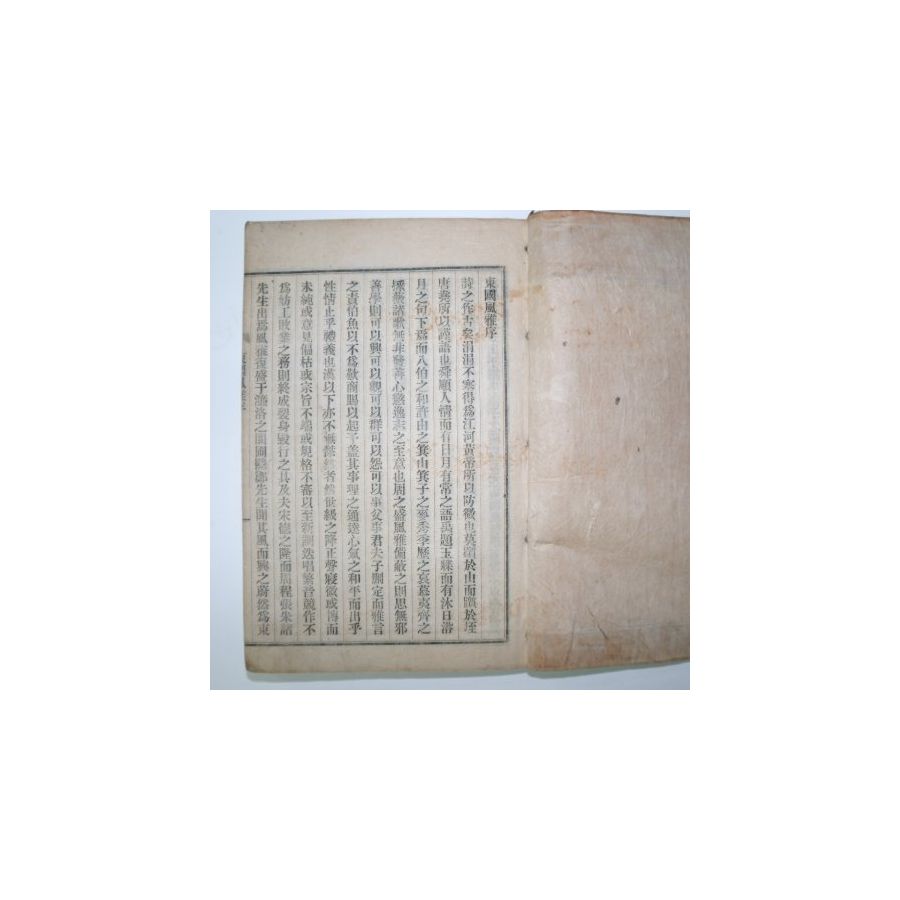 東國風雅序
詩之作古矣涓涓不塞得爲江河黃帝所以防微也莫躓於山而躓於垤
唐堯所以謹語也舜順人情而有日月有常之語吳題玉牒而有沐日浴
月之句下焉而八伯之和許由之箕山箕子之麥秀季歷之哀慕夷齊之
採薇諸歌無非發善心懲逸志之至意也周之盛風雅備蔽之則思無邪
善學則可以興可以觀可以群可以怨可以事父事君夫子刪定而雅言
之責伯魚以不爲歎商賜以起予蓋其事理之通達心氣之和平而出乎
性情止乎禮義也漢以下亦不無 者然世級之降正聲寢微或 而
未純或意見偏枯或宗旨不端或規格不審以至新調迭唱繁音競作不
爲妨工敗業之務則終成喪身毀行之具及夫宋德之隆而周程張朱諸
先生出焉風雅復盛于濂洛之 圃隱 先生聞其風而興之蔚然爲東